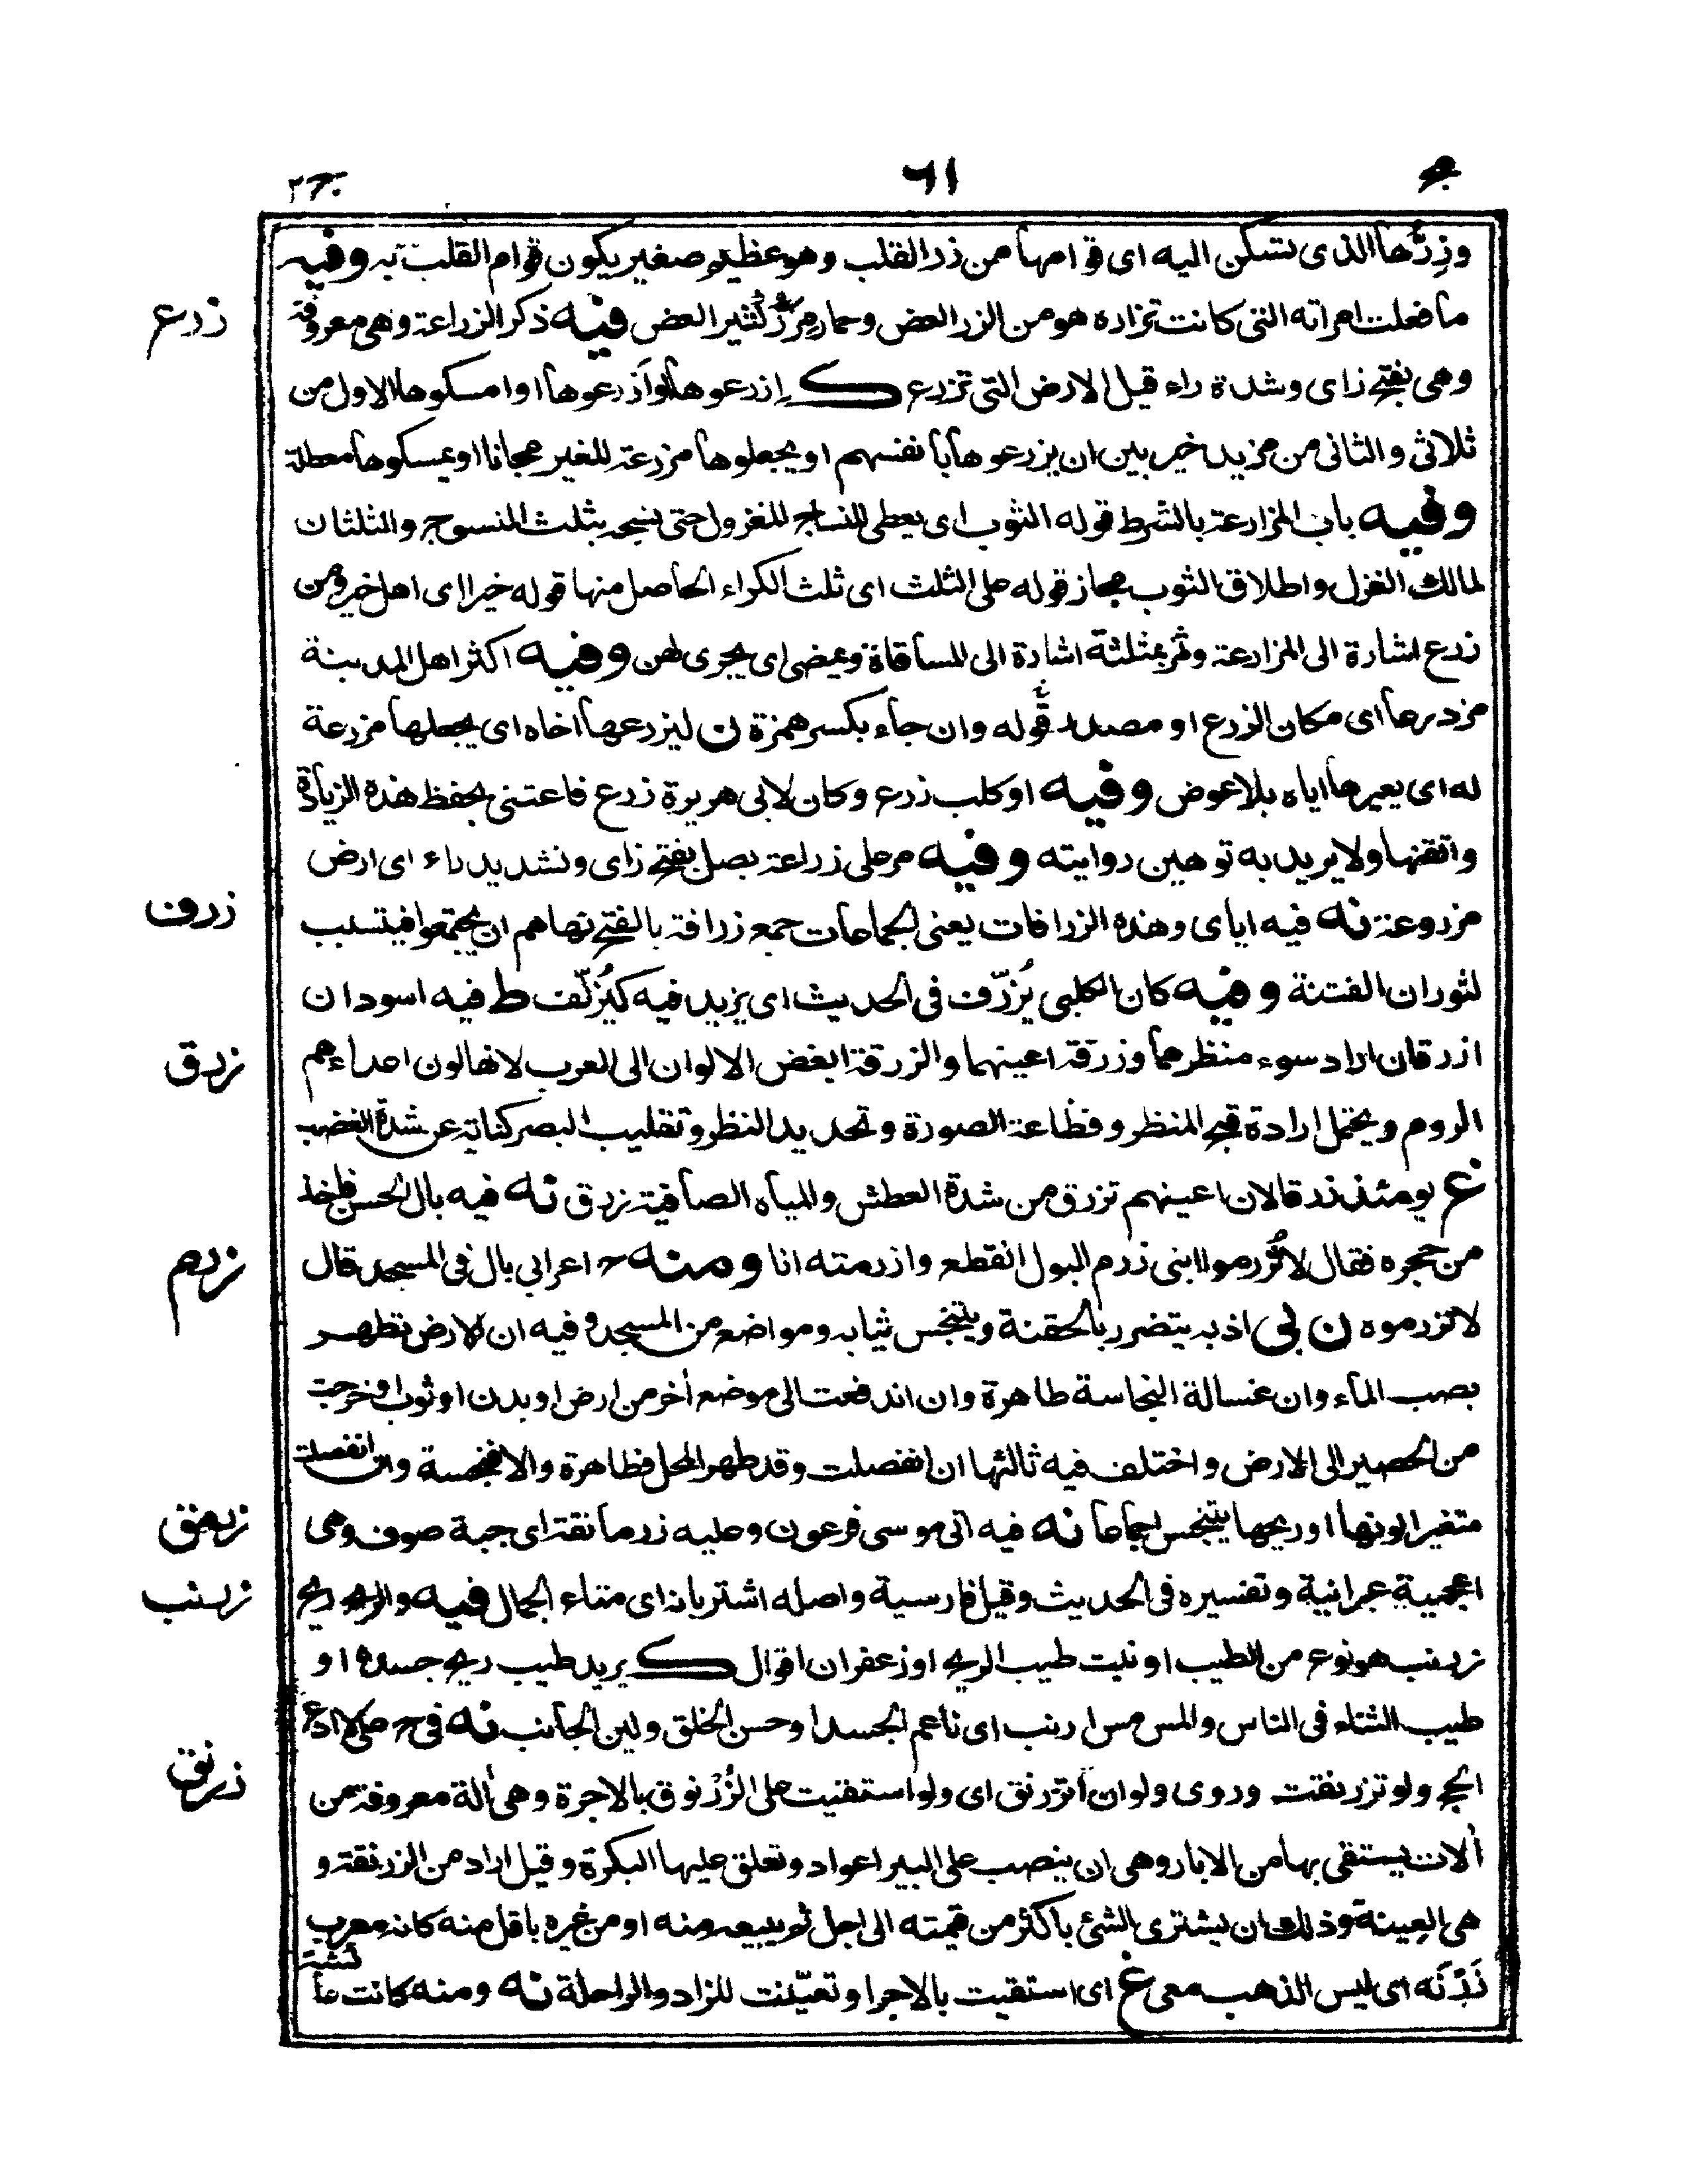 ج ٦١ ج٢
وزِرُّها الذى تسكن اليه اى قوامها من زر القلب وهو عظيم صغير يكون قوام القلب به وفيه
ما فعلت امراته التى كانت تزاره هو من الزر العض وحمار مِزَرّ كثير العض فيه ذكر الزراعة وهى معروفة
زرع
وهى بفتح زاى وشدة راء قيل الارض التى تزرع ك ازرعوها او اَزرعوها او امسكوها الاول من
ثلاثى والثانى من مزيد خير بين ان يزرعوها بانفسهم او يجعلوها مزرعة للغير مجانا او يمسكوها معطلة
وفيه باب المزارعة بالشرط قوله الثوب اى يعطى للنساج للغزول حتى ينسجه بثلث المنسوج والثلثان
لمالك الغزل واطلاق الثوب مجاز قوله على الثلث اى ثلث الكراء الحاصل منها قوله خيبر اى اهل خيبر ومن
زرع اشارة الى المزارعة وثمر بمثلثة اشارة الى المساقاة ويمضى اى يجرى لهن وفيه اكثر اهل المدينة
مزدرعا اى مكان الزرع او مصدر قوله وان جاء بكسر همزة ن ليزرعها اخاه اى يجعلها مزرعة
له اى يعيرها اياه بلا عوض وفيه او كلب زرع وكان لابى هريرة زرع فاعتنى بحفظ هذه الزيادة
واتقنها ولا يريد به توهين روايته وفيه مر على زراعة بصل بفتح زاى وتشديد راء اى ارض
زرف
مزروعة نه فيه اياى وهذه الزرافات يعنى الجماعات جمع زرافة بالفتح نهاهم ان يجتمعوا فيتسبب
لثوران الفتنة وفيه كان الكلبى يُزرّف فى الحديث اى يزيد فيه كيُزلّف ط فيه اسودان
زرق
ازرقان اراد سوء منظرهما وزرقة اعينهما والزرقة ابغض الالوان الى العرب لانها لون اعداءهم
الروم ويحتمل ارادة قبح المنظر وفظاعة الصورة وتحديد النظر وتقليب البصر كناية عن شدة الغضب
غ يومئذ زرقا لان اعينهم تزرق من شدة العطش والمياه الصافية زرق نه فيه بال الحسن فاخذ
زرم
من حجره فقال لا تُزرموا ابنى زرم البول انقطع وازرمته انا ومنه ح اعرابى بال فى المسجد قال
لا تزرموه ن بى اذ به يتضرر بالحقنة ويتنجس ثيابه ومواضع من المسجد وفيه ان الارض تطهر
بصب الماء وان غسالة النجاسة طاهرة وان اندفعت الى موضع أخر من ارض او بدن او ثوب او خرجت
من الحصير الى الارض واختلف فيه ثالثها ان انفصلت وقد طهر المحل فطاهرة والا فنجسة وان انفصلت
زرمنق
متغيرا لونها او ريحها يتنجس اجماعا نه فيه اتى موسى فرعون وعليه زرمانقة اى جبة صوف وهى
زرنب
اعجمية عبرانية وتفسيره فى الحديث وقيل فارسية واصله اشتربانه اى متاء الجمال فيه والريح ريح
زرنب هو نوع من الطيب او نبت طيب الريح او زعفران اقوال ك يريد طيب ريح جسده او
طيب الثناء فى الناس والمس مس ارنب اى ناعم الجسد او حسن الخلق ولين الجانب نه فى ح على لا ادع
زرنق
الحج ولو تزرنقت وروى ولو ان أتزرنق اى ولو استقيت على الزُرْنوق بالاجرة وهى ألة معروفة من
ألات يستقى بها من الابار وهى ان ينصب على البير اعواد وتعلق عليها البكرة وقيل اراد من الزرنقة و
هى العِينة وذلك ان يشترى الشئ باكثر من قيمته الى اجل ثم يبيعه منه او من غيره باقل منه كانه معرب
زَرْنَه اى ليس الذهب معى غ اى استقيت بالاجر او تعيّنت للزاد والراحلة نه ومنه كانت عائشة